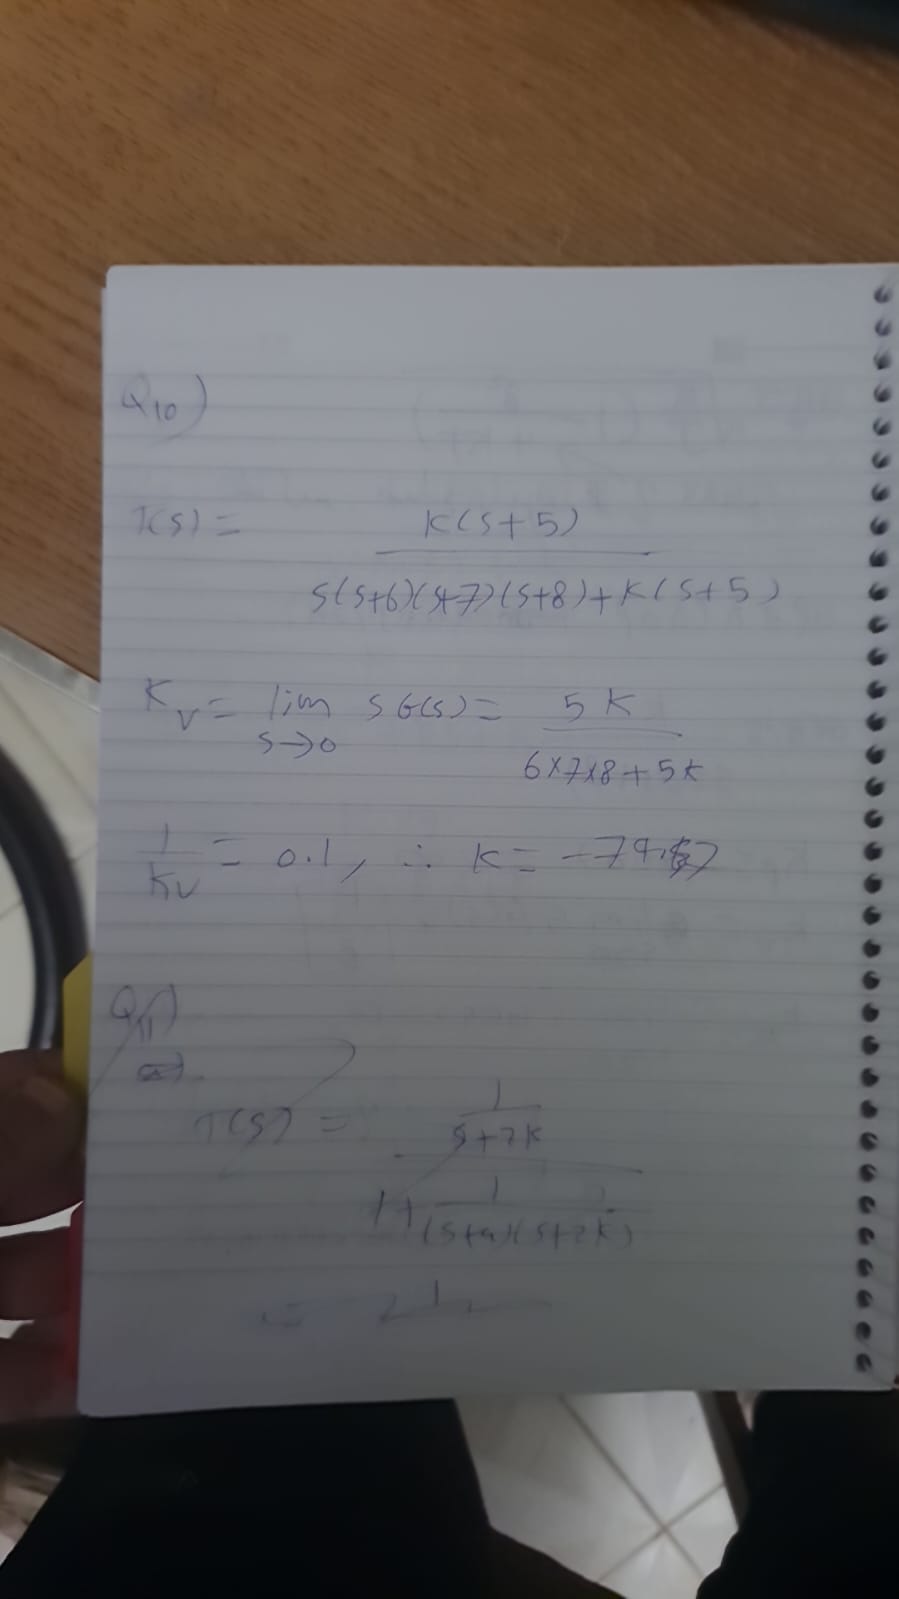 Q10)
T(s) = K(s+5)
s(s+6)(s+7)(s+8)+K(s+5)
Kv = lim s G(s) = 5K
s→0
6×7×8+5K
1/Kv = 0.1, ∴ K =
Q11)
T(s) = 1
s+2K
1+ 1
(s+a)(s+2K)
=